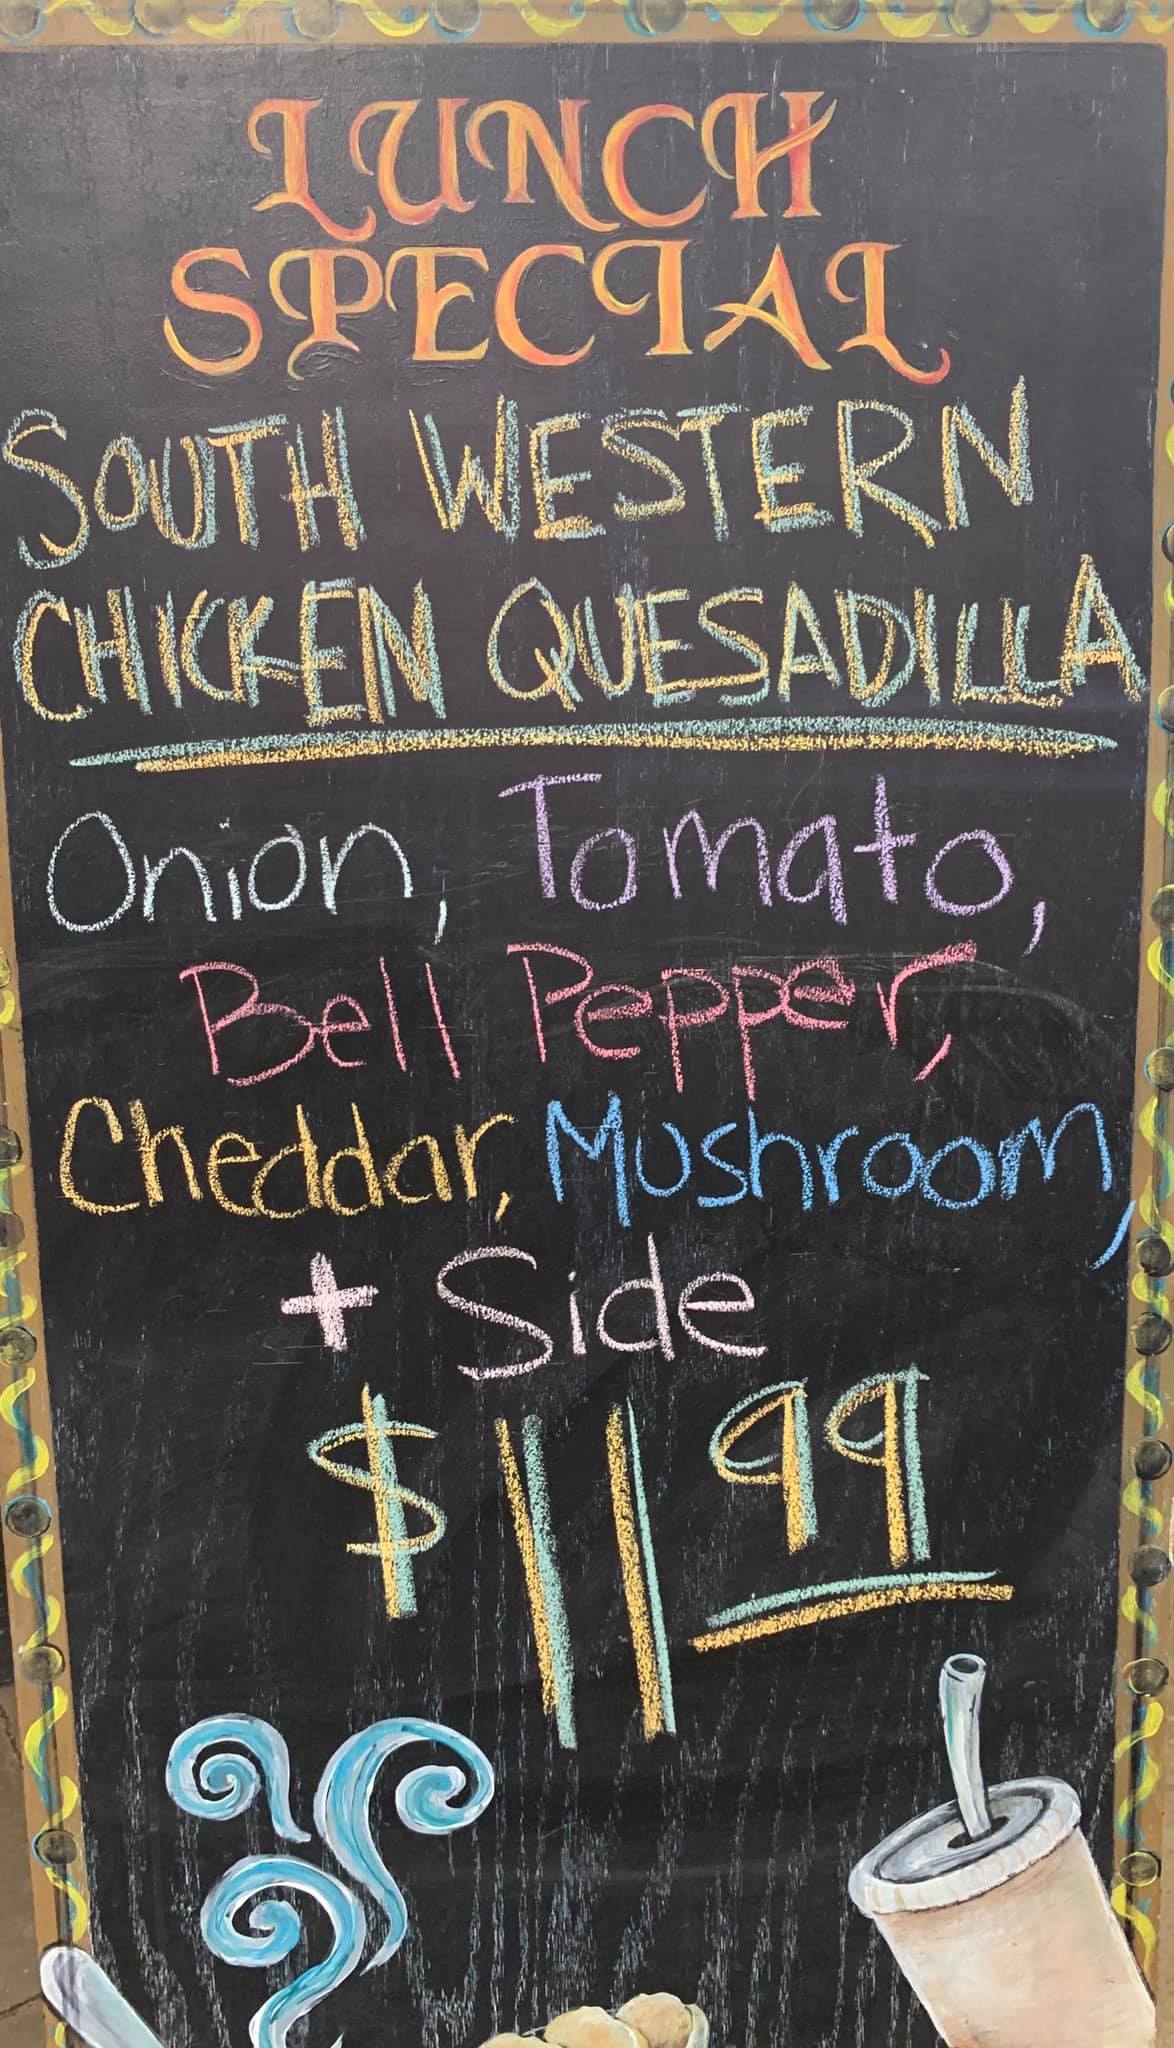 LUNCH
SPECIAL
SOUTH WESTERN
CHICKEN QUESADILLA
Onion, Tomato,
Bell Pepper,
Cheddar, Mushroom,
+ Side
$11 99